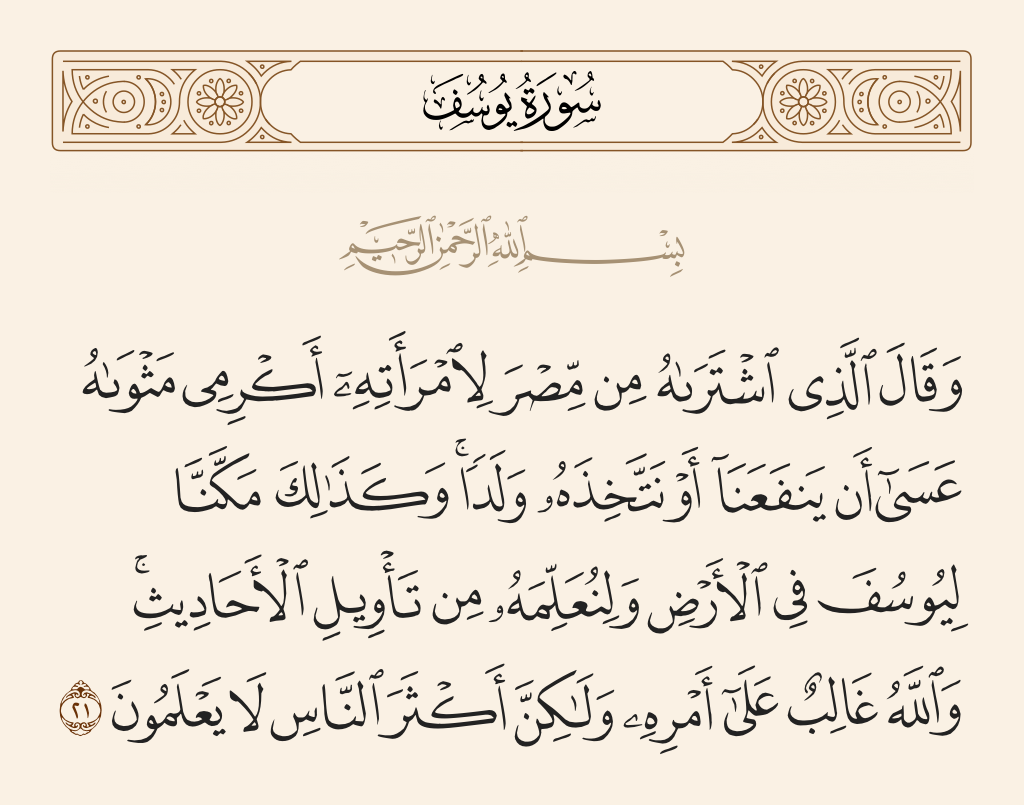 سُورَةُ يُوسُفَ
بِسْمِ ٱللَّهِ ٱلرَّحْمَٰنِ ٱلرَّحِيمِ
وَقَالَ ٱلَّذِى ٱشْتَرَىٰهُ مِن مِّصْرَ لِٱمْرَأَتِهِۦٓ أَكْرِمِى مَثْوَىٰهُ
عَسَىٰٓ أَن يَنفَعَنَآ أَوْ نَتَّخِذَهُۥ وَلَدًا ۚ وَكَذَٰلِكَ مَكَّنَّا
لِيُوسُفَ فِى ٱلْأَرْضِ وَلِنُعَلِّمَهُۥ مِن تَأْوِيلِ ٱلْأَحَادِيثِ ۚ
وَٱللَّهُ غَالِبٌ عَلَىٰٓ أَمْرِهِۦ وَلَـٰكِنَّ أَكْثَرَ ٱلنَّاسِ لَا يَعْلَمُونَ ٢١